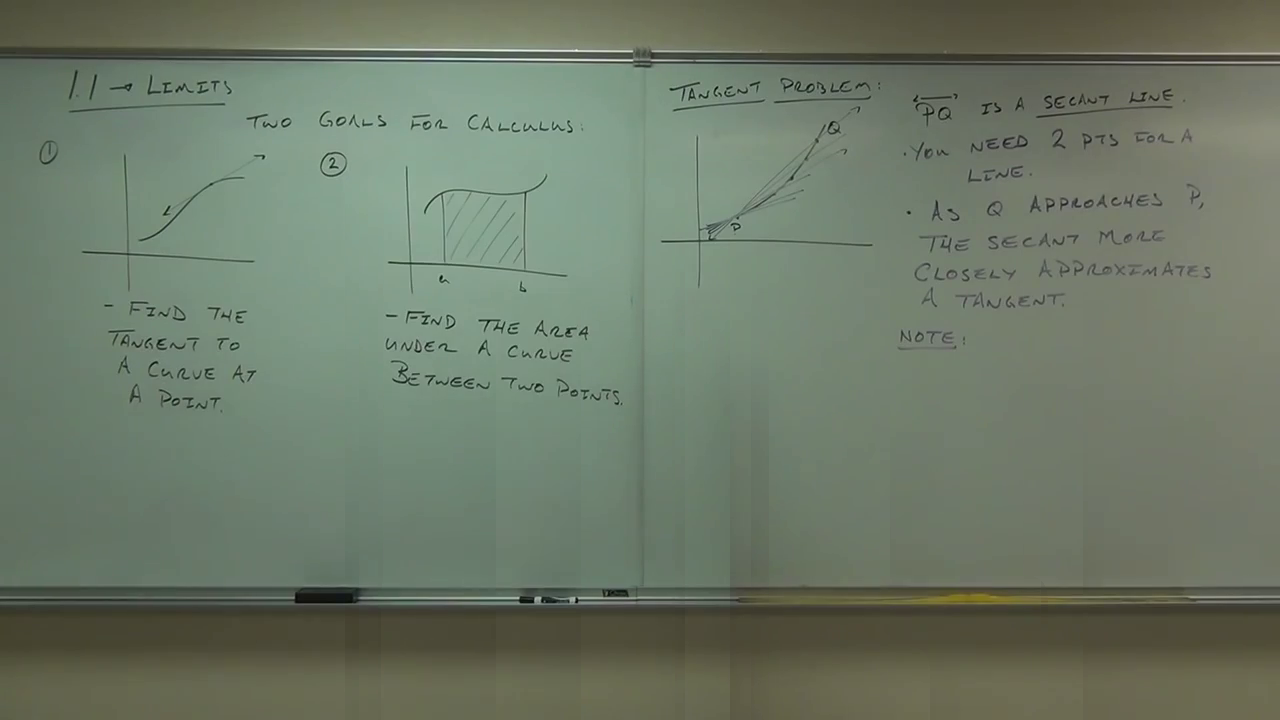 1.1 → LIMITS
TWO GOALS FOR CALCULUS:
①
- FIND THE
TANGENT TO
A CURVE AT
A POINT.
②
a b
- FIND THE AREA
UNDER A CURVE
BETWEEN TWO POINTS.
TANGENT PROBLEM:
Q
P
PQ IS A SECANT LINE.
• YOU NEED 2 PTS FOR A
LINE.
• AS Q APPROACHES P,
THE SECANT MORE
CLOSELY APPROXIMATES
A TANGENT.
NOTE: